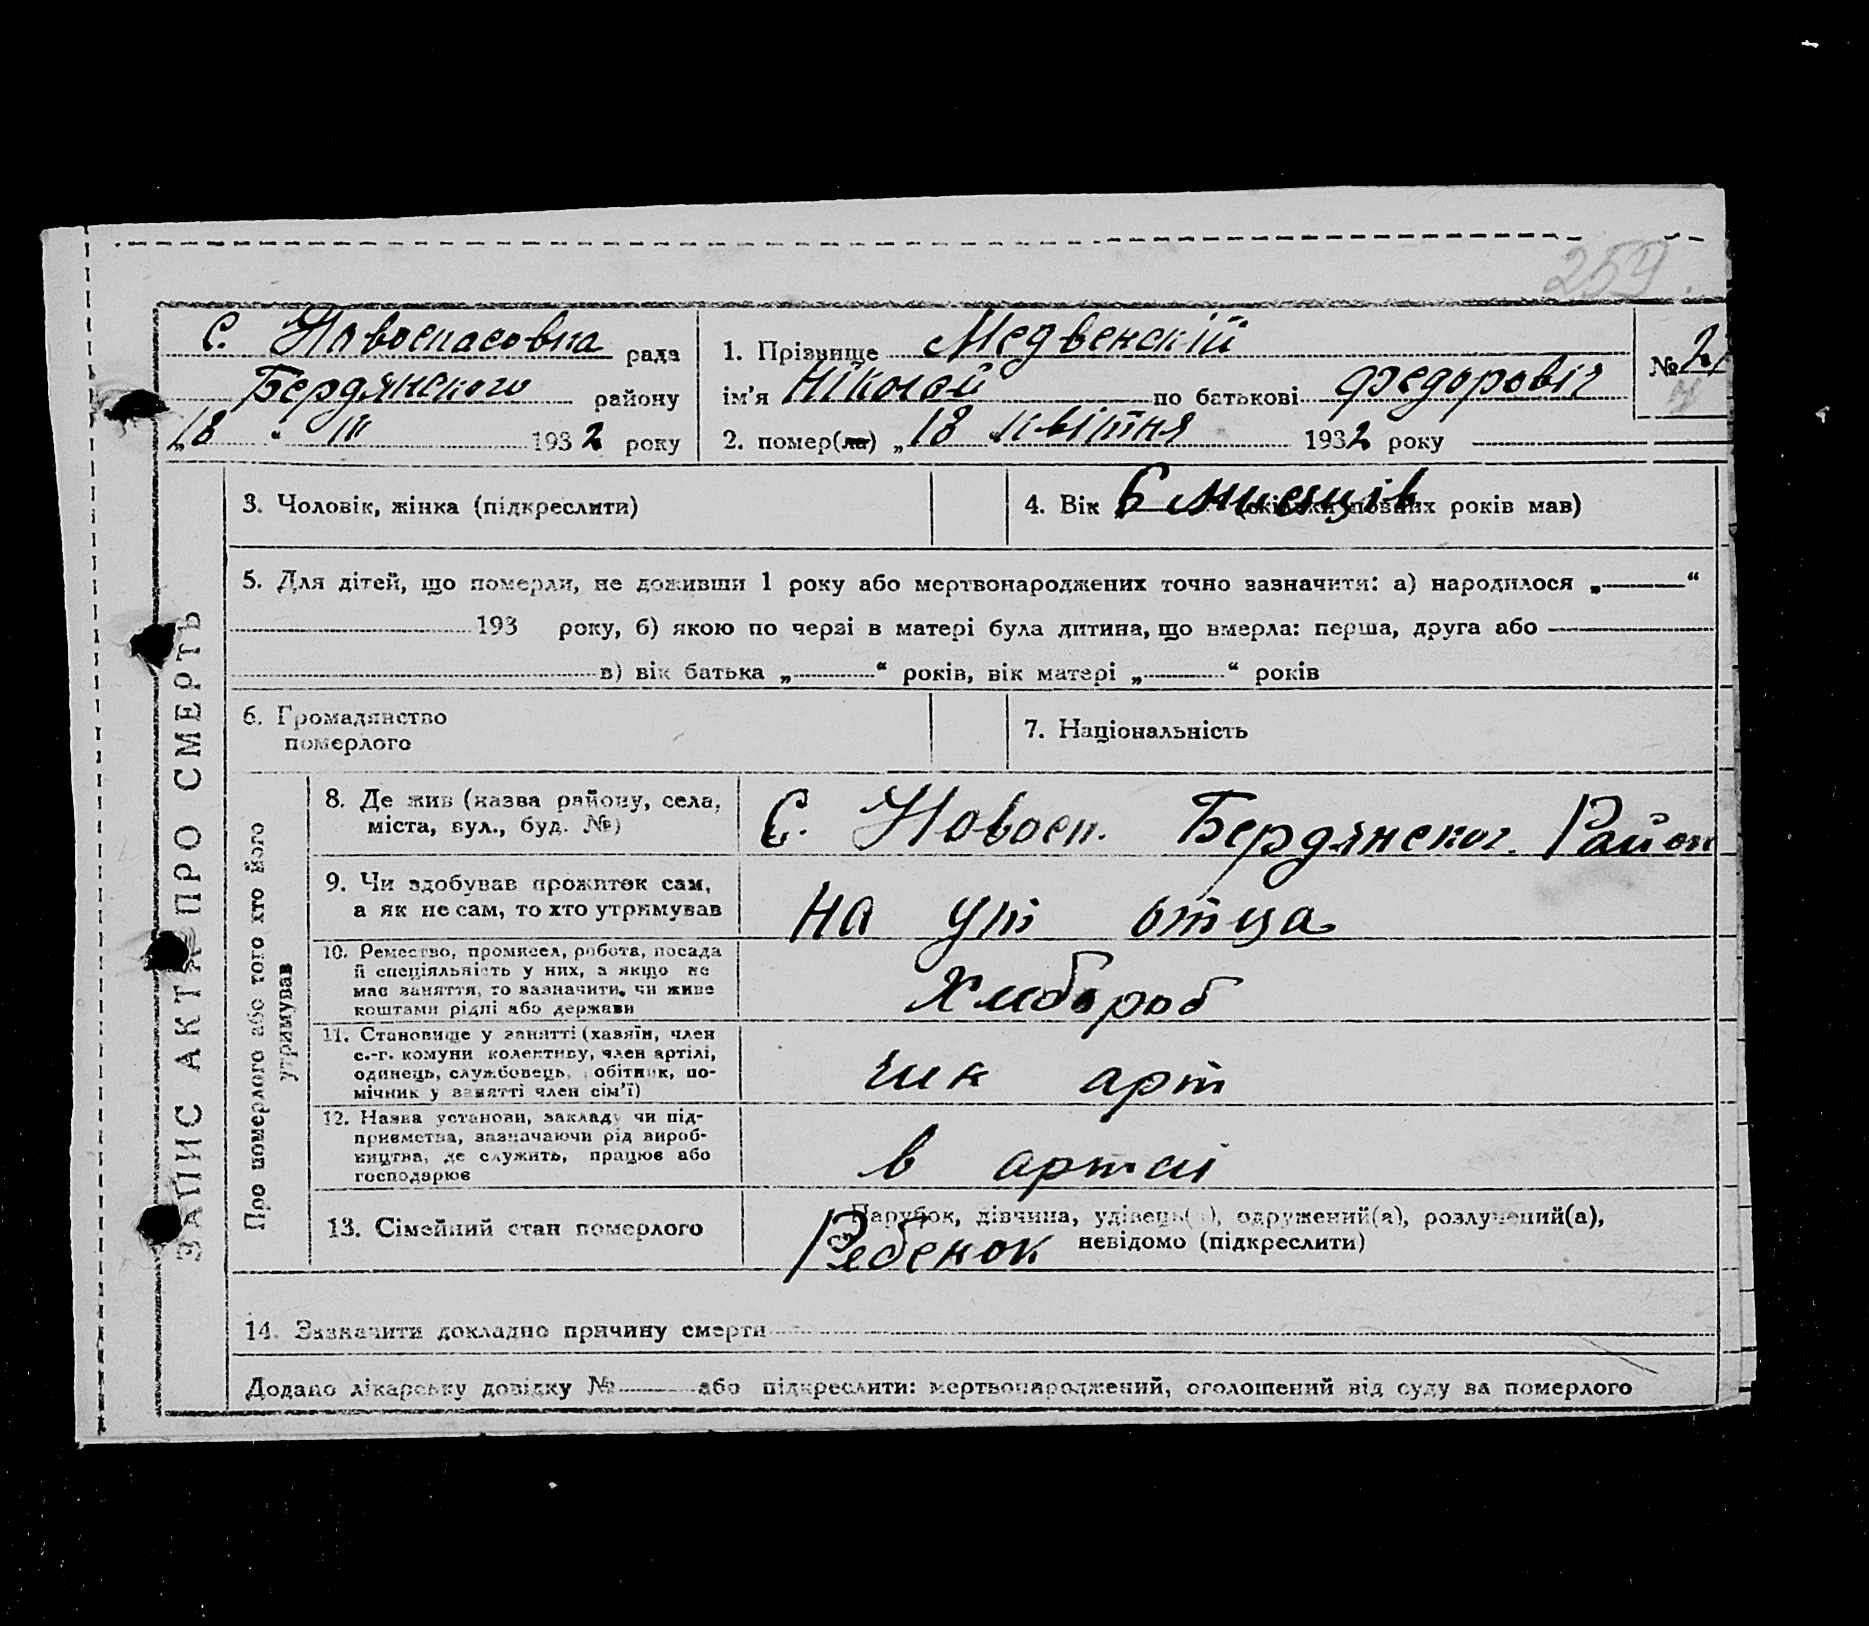 259
С. Новоспасовка рада
Бердянского району
„18 " IV 1932 року
1. Прізвище Медвенскій
ім'я Ніколай по батькові Федоровіч
2. помер(ла) „18 квітня 1932 року
№ 2
3. Чоловік, жінка (підкреслити)
4. Вік 6 мисяців (скільки повних років мав)
5. Для дітей, що померли, не доживши 1 року або мертвонароджених точно зазначити: а) народилося „ “
193 року, б) якою по черзі в матері була дитина, що вмерла: перша, друга або
в) вік батька „ “ років, вік матері „ “ років
6. Громадянство
померлого
7. Національність
8. Де жив (назва району, села,
міста, вул., буд. №)
С. Новосп. Бердянског. Район
9. Чи здобував прожиток сам,
а як не сам, то хто утримував
на ут отца
10. Ремество, промисел, робота, посада
й спеціяльність у них, а якщо не
має заняття, то зазначити, чи живе
коштами рідні або держави
Хлибороб
11. Становище у занятті (хазяїн, член
с.-г. комуни колективу, член артілі,
одинець, службовець, робітник, по-
мічник у занятті член сім'ї)
член арт
12. Назва установи, закладу чи під-
приємства, зазначаючи рід вироб-
ництва, де служить, працює або
господарює
в артелі
13. Сімейний стан померлого
Парубок, дівчина, удівець(а), одружений(а), розлучений(а),
невідомо (підкреслити)
Ребенок
14. Зазначити докладно причину смерти
Додано лікарську довідку № або підкреслити: мертвонароджений, оголошений від суду за померлого
ЗАПИС АКТА ПРО СМЕРТЬ
Про померлого або того хто його
утримував